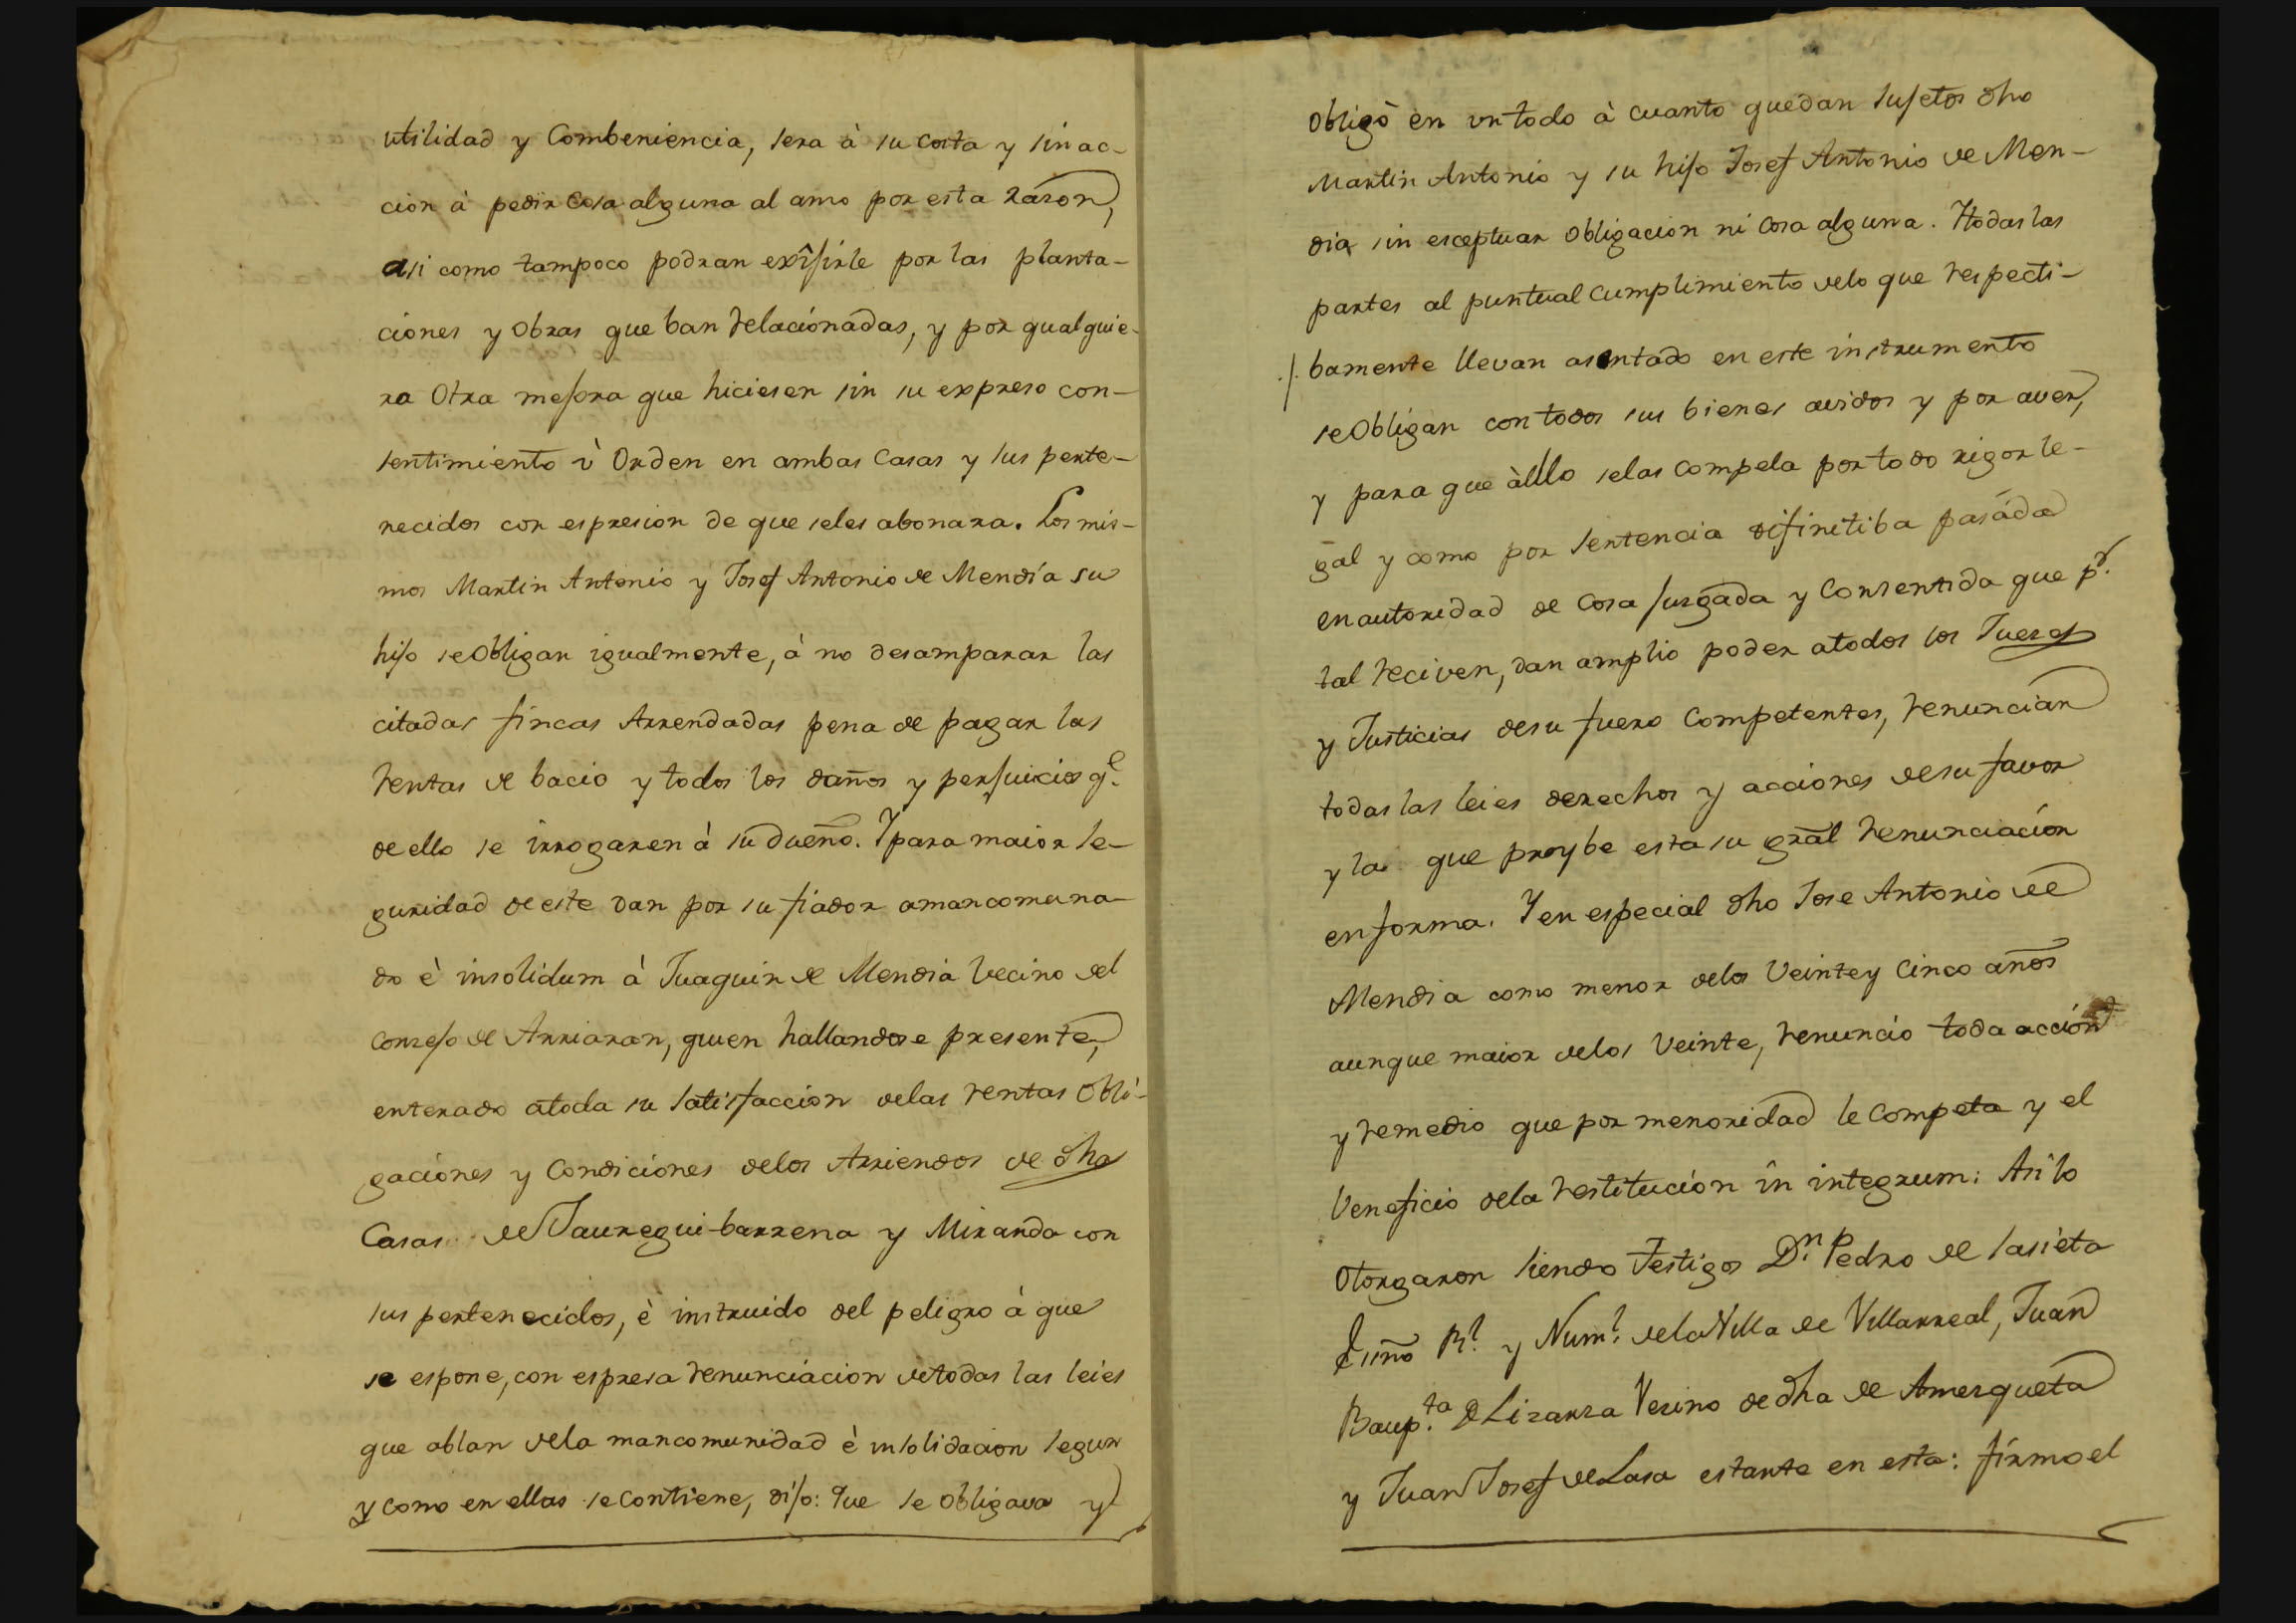 utilidad y Combeniencia, sera à su costa y sin ac-
cion à pedir cosa alguna al amo por esta razon,
asi como tampoco podran exîjirle por las planta-
ciones y Obras que ban relacionadas, y por qualquie-
ra Otra mejora que hiciesen sin su expreso con-
sentimiento ù Orden en ambas Casas y sus perte-
necidos con espresion de que seles abonara. Los mis-
mos Martin Antonio y Josef Antonio de Mendía su
hijo se Obligan igualmente, à no desamparar las
citadas fincas Arrendadas pena de pagar las
rentas de bacio y todos los daños y perjuicios q.e
de ello se irrogaren à su dueño. Y para maior se-
guridad de este dan por su fiador amancomuna-
do è insolidum à Juaquin de Mendia vecino del
conzejo de Arriaran, quien hallandose presente,
enterado atoda su satisfaccion delas rentas Obli-
gaciones y Condiciones delos Arriendos de dha
Casas de Jauregui-barrena y Miranda con
sus pertenecidos, è instruido del peligro à que
se espone, con espresa renunciacion detodas las leies
que ablan dela mancomunidad è insolidacion segun
y como en ellas se contiene, dijo: Que se obligava y
Obligò en un todo à cuanto quedan sujetos dho
Martin Antonio y su hijo Josef Antonio de Men-
dia sin esceptuar Obligacion ni cosa alguna. Ytodas las
partes al puntual cumplimiento delo que respecti-
./. bamente llevan asentado en este instrumento
se Obligan con todos sus bienes avidos y por aver,
y para que àello selas compela por todo rigor le-
gal y como por sentencia difinitiba pasada
en autoridad de cosa jusgada y Consentida que p.r
tal reciven, dan amplio poder atodos los Jueces
y Justicias desu fuero Competentes, renuncian
todas las leies derechos y acciones desu favor
y la que proybe esta su gral renunciación
en forma. Y en especial dho Jose Antonio de
Mendia como menor delos Veinte y Cinco años
aunque maior delos Veinte, renunció toda acción
y remedio que por menoridad le competa y el
Veneficio dela restitución in integrum: Asi lo
Otorgaron siendo Testigos D.n Pedro de Lasieta
Essño R.l y Num.l dela Villa de Villarreal, Juan
Baup.ta de Lizarza Vesino de dha de Amezqueta
y Juan Josef de Lasa estante en esta: firmo el